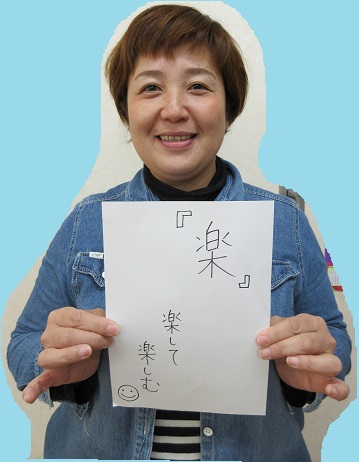 『楽』
楽して
楽しむ